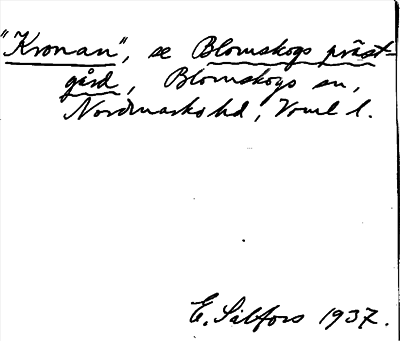 "Kronan", se Blomskogs präst-
gård, Blomskogs sn,
Nordmarks hd, Vrml l.
E. Sälfors 1937.